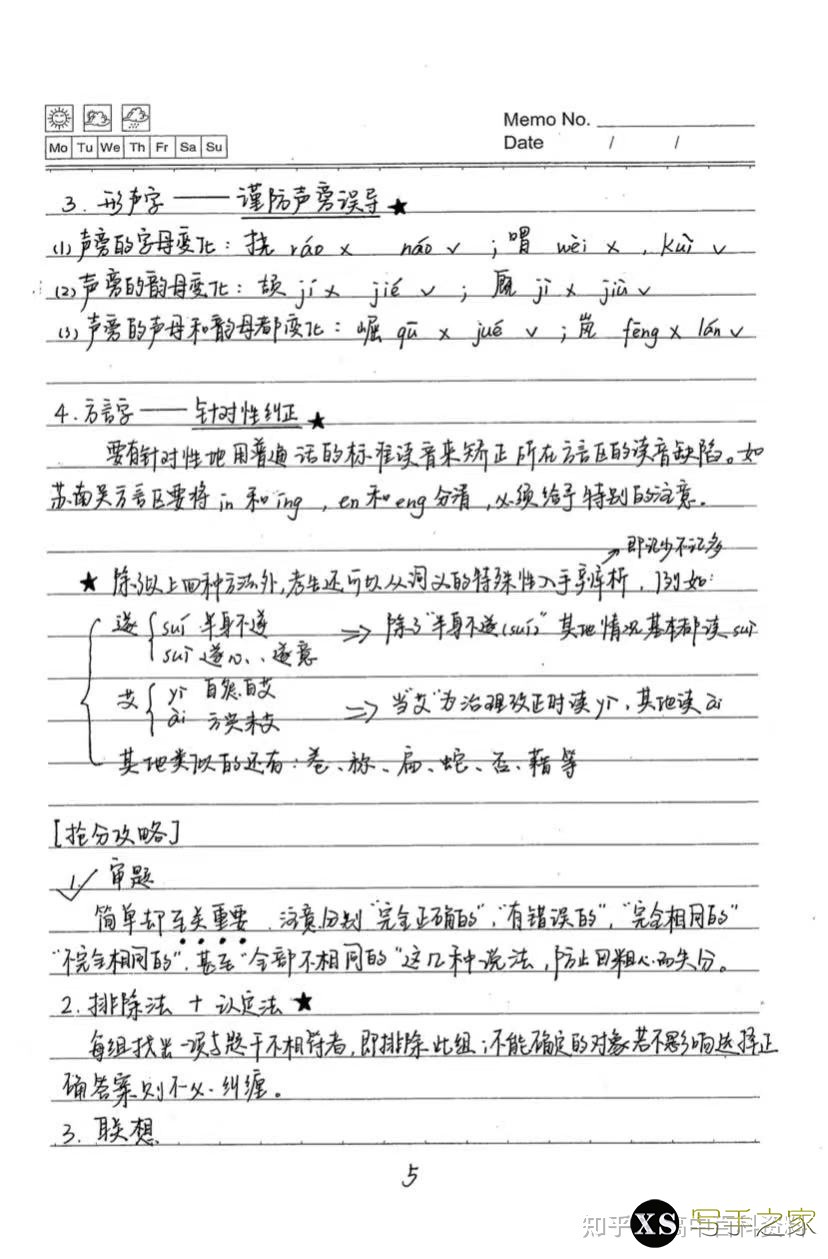 Memo No.
Mo Tu We Th Fr Sa Su
Date / /
3. 形声字 —— 谨防声旁误导 ★
(1) 声旁的字母变化：挠 ráo × náo ✓ ；喟 wèi ×, kuì ✓
(2) 声旁的韵母变化：颉 jí × jié ✓ ； 厩 jì × jiù ✓
(3) 声旁的声母和韵母都变化：崛 qū × jué ✓ ；岚 fēng × lán ✓
4. 方言字 —— 针对性纠正 ★
要有针对性地用普通话的标准读音来矫正所在方言区的读音缺陷。如
苏南吴方言区要将 in 和 ing ，en 和 eng 分清，必须给予特别的注意。
即记少不记多
★ 除了以上四种方法外，考生还可以从词义的特殊性入手辨析，例如：
遂 suí 半身不遂 => 除了“半身不遂(suí)”其他情况基本都读 suì
suì 遂心、遂意
艾 yì 自怨自艾 => 当“艾”为治理改正时读 yì，其他读 ài
ài 方兴未艾
其他类似的还有：卷、称、扁、蛇、否、藉 等
[抢分攻略]
1. 审题
简单却至关重要．注意分别“完全正确的”，“有错误的”，“完全相同的”
“不完全相同的”，甚至“全部不相同的”这几种说法，防止因粗心而失分。
2. 排除法 + 认定法 ★
每组找出一项与题干不相符者，即排除此组；不能确定的对象若不影响选择正
确答案则不必纠缠。
3. 联想
5
知乎
XS 写手之家